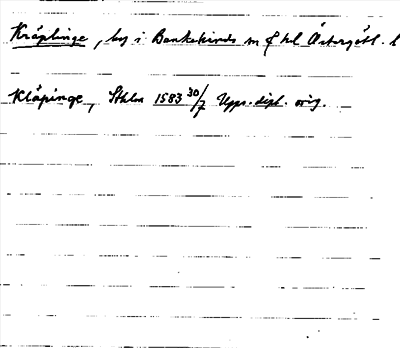 Kräplinge, by i Bankekinds sn o hd Östergötl. l
Klåpinge, Sthlm 1583 30/7 Upps. dipl. orig.